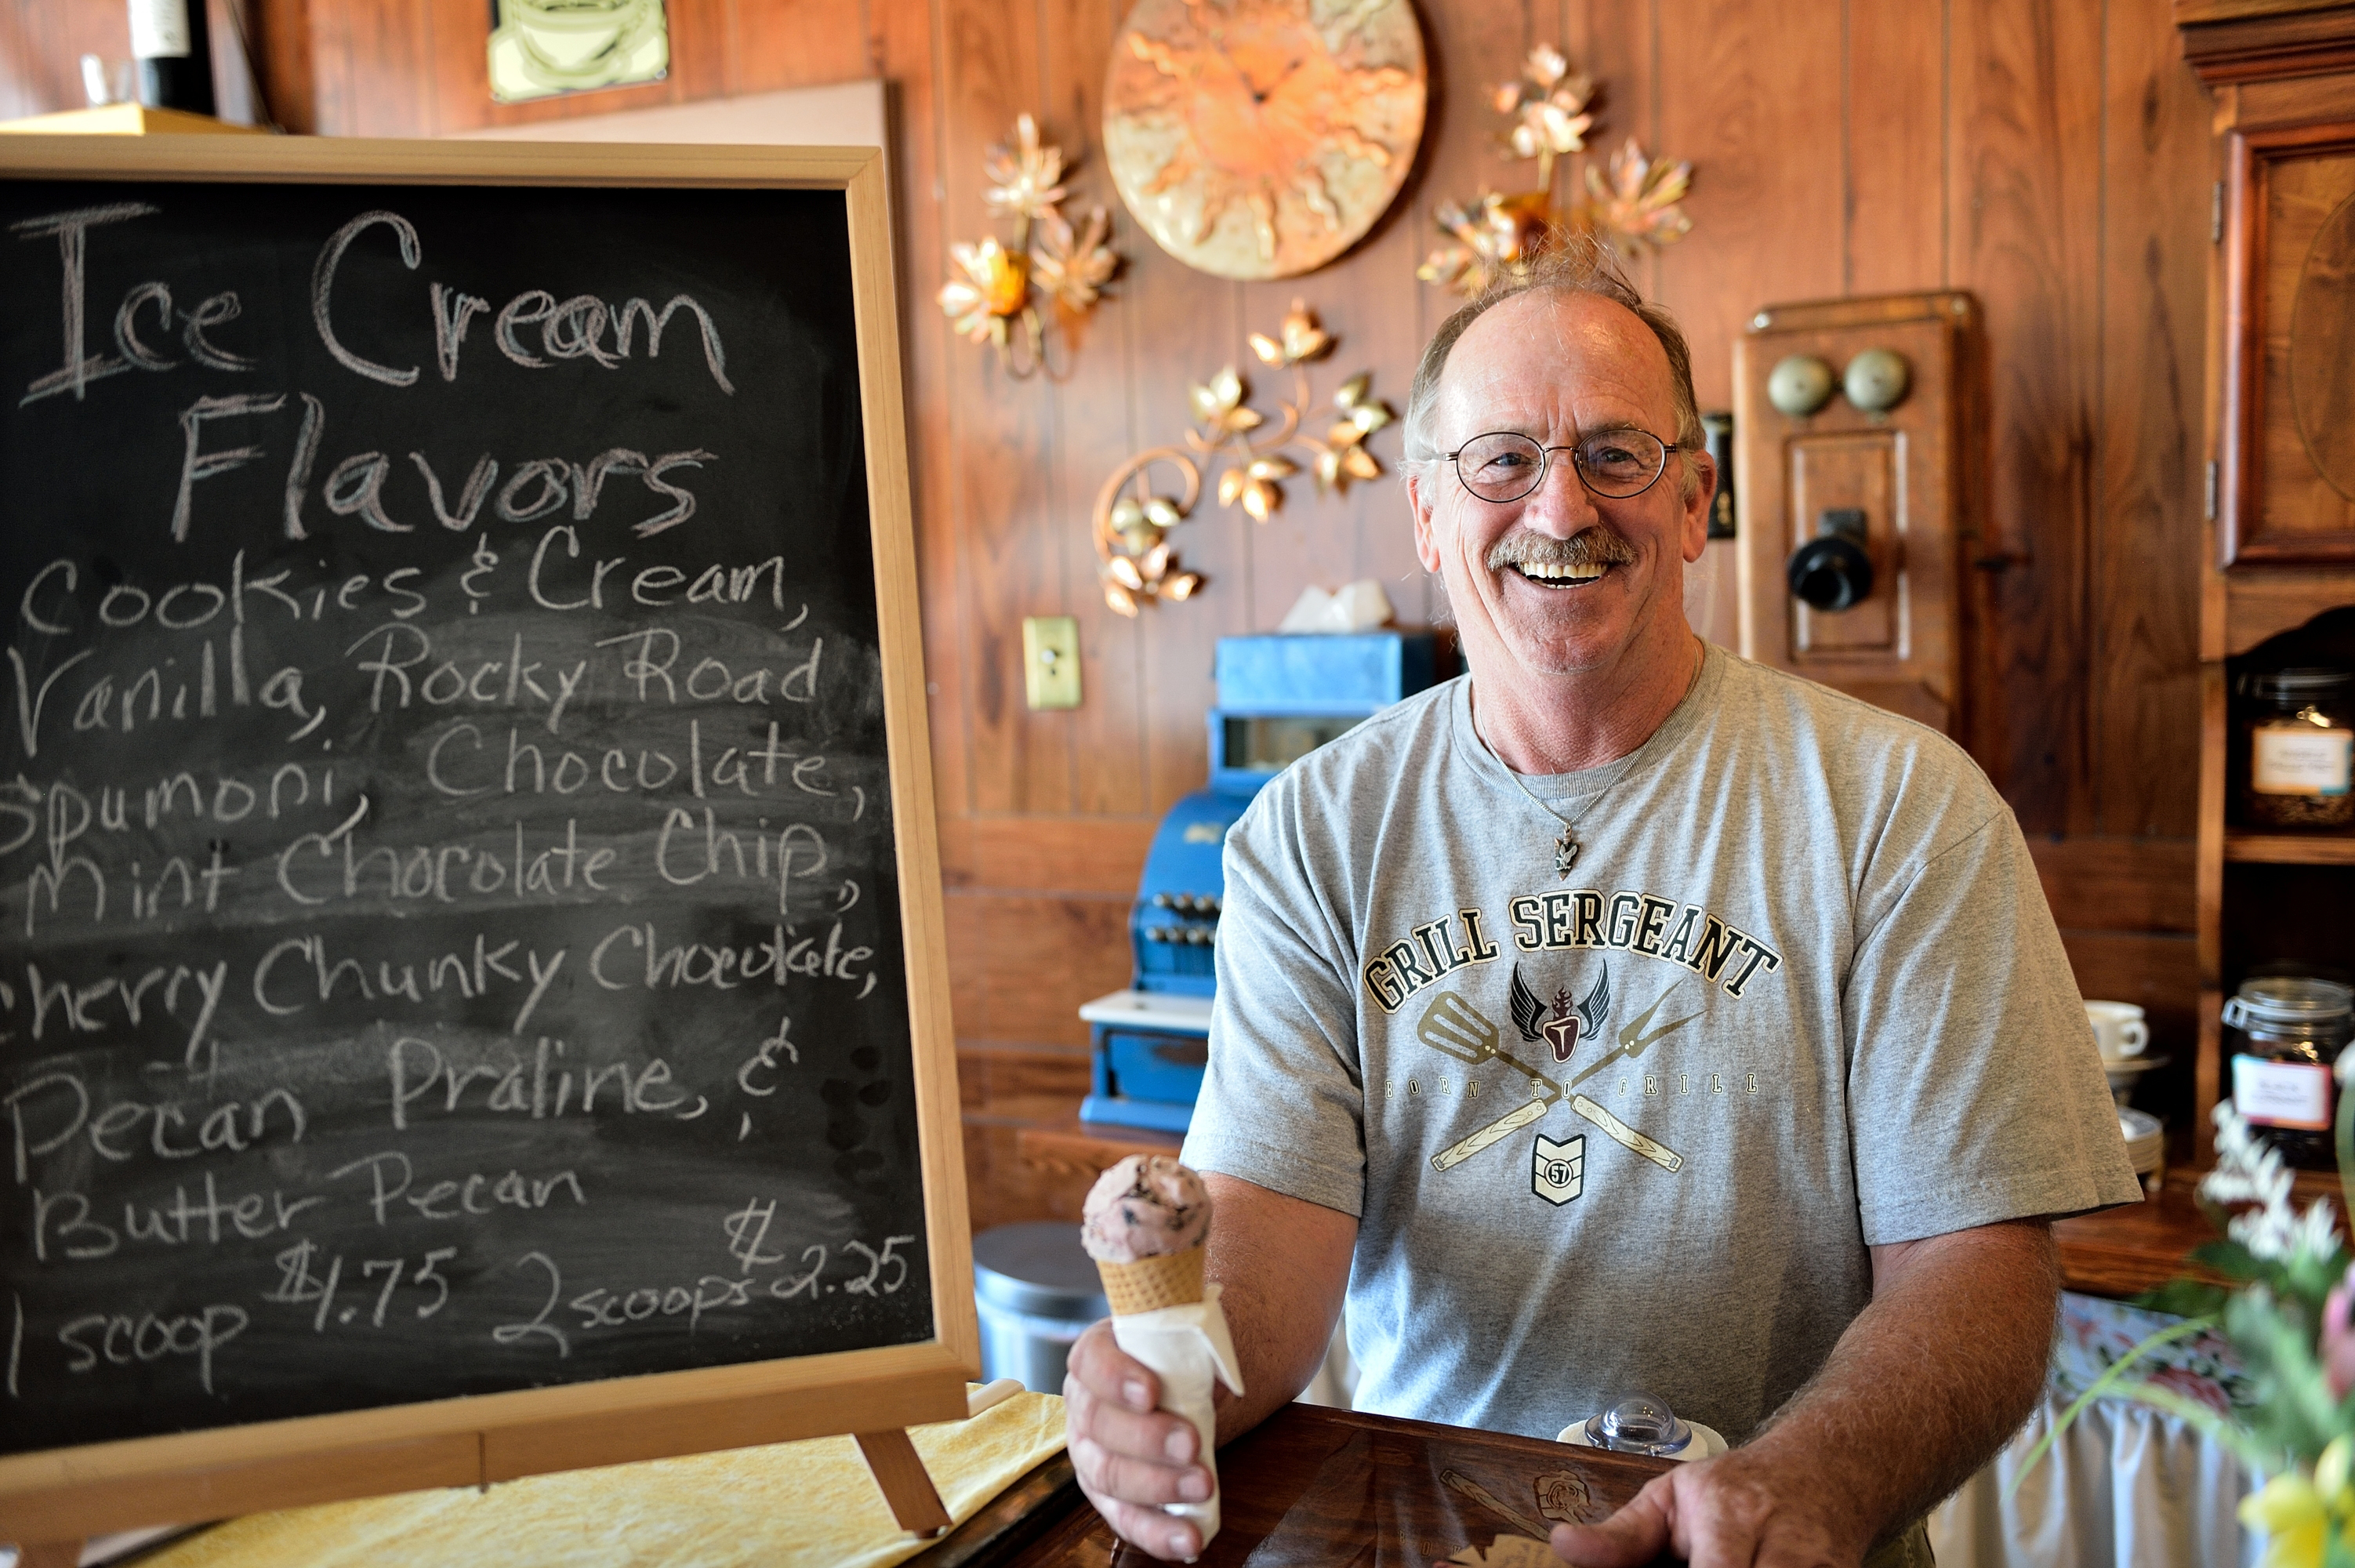 Ice Cream
Flavors
Cookies & Cream,
Vanilla, Rocky Road
Spumoni, Chocolate,
Mint Chocolate Chip,
Cherry Chunky Chocolate,
Pecan Praline, &
Butter Pecan
1 scoop $1.75 2 scoops $2.25
GRILL SERGEANT
BORN TO GRILL
57